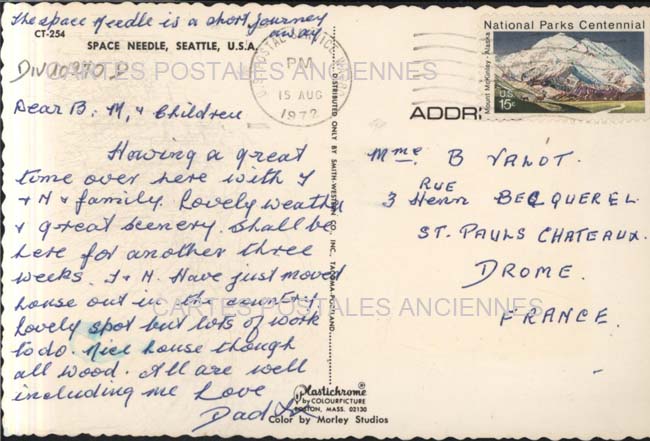 The space needle is a short journey
away
CT-254
SPACE NEEDLE, SEATTLE, U.S.A.
Div10270.D
CARTES POSTALES ANCIENNES
Dear B. M, + Children
Howing a great
time over here with J
+ N + family. Lovely weather
+ great scenery. Shall be
here for another three
weeks. J + N. Have just moved
house out in the country
lovely spot but lots of work
to do. Nice house though
all wood. All are well
including me Love
Dad
DISTRIBUTED ONLY BY SMITH-WESTERN CO., INC., TACOMA-PORTLAND
U.S. POSTAL SERVICE
PM
15 AUG
1972
National Parks Centennial
Mount McKinley - Alaska
U.S.
15c
ADDR
Mme. B VALOT.
RUE
3 Henri BECQUEREL
ST. PAULS CHATEAUX.
DROME.
FRANCE.
CARTES POSTALES ANCIENNES
Plastichrome®
by COLOURPICTURE
BOSTON, MASS. 02130
Color by Morley Studios